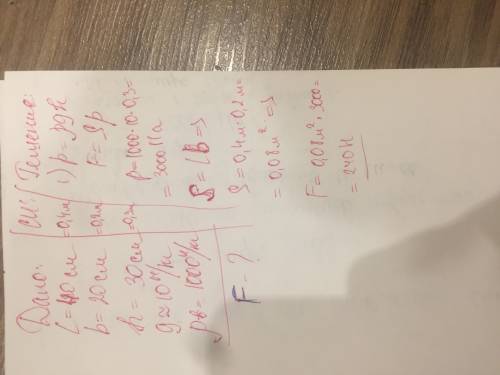 Дано:
L = 40 см
b = 20 см
h = 30 см
g ≈ 10 Н/м
ρв = 1000 м/м
F - ?
СИ:
= 0,4 м
= 0,2 м
= 0,3 м
Решение:
1) p = ρgh
F = Sp
p = 1000 · 10 · 0,3 =
= 3000 Па
S = LB =>
S = 0,4 м · 0,2 м =
= 0,08 м² =>
F = 0,08 м² · 3000 =
= 240 Н